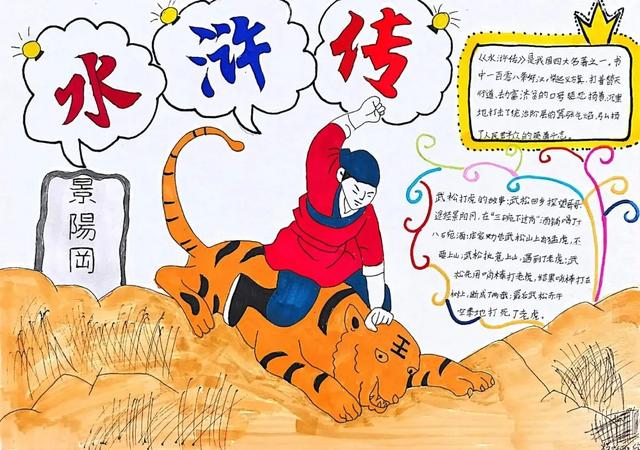 水浒传
景陽岡
《水浒传》是我国四大名著之一。书
中一百零八条好汉,举起义旗,打着替天
行道、劫富济贫的口号
地打击了统治阶层的嚣张气焰,弘扬
了人民群众的英勇斗志。
武松打虎的故事:武松回乡探望哥哥
途经景阳冈,在“三碗不过岗”酒铺喝了十
八碗酒;店家劝告武松山上有猛虎,不
要上山;武松执意上山,遇到了老虎;武
松先用哨棒打老虎,结果哨棒打在
树上,断成了两截;最后武松赤手
空拳地打死了老虎。
王